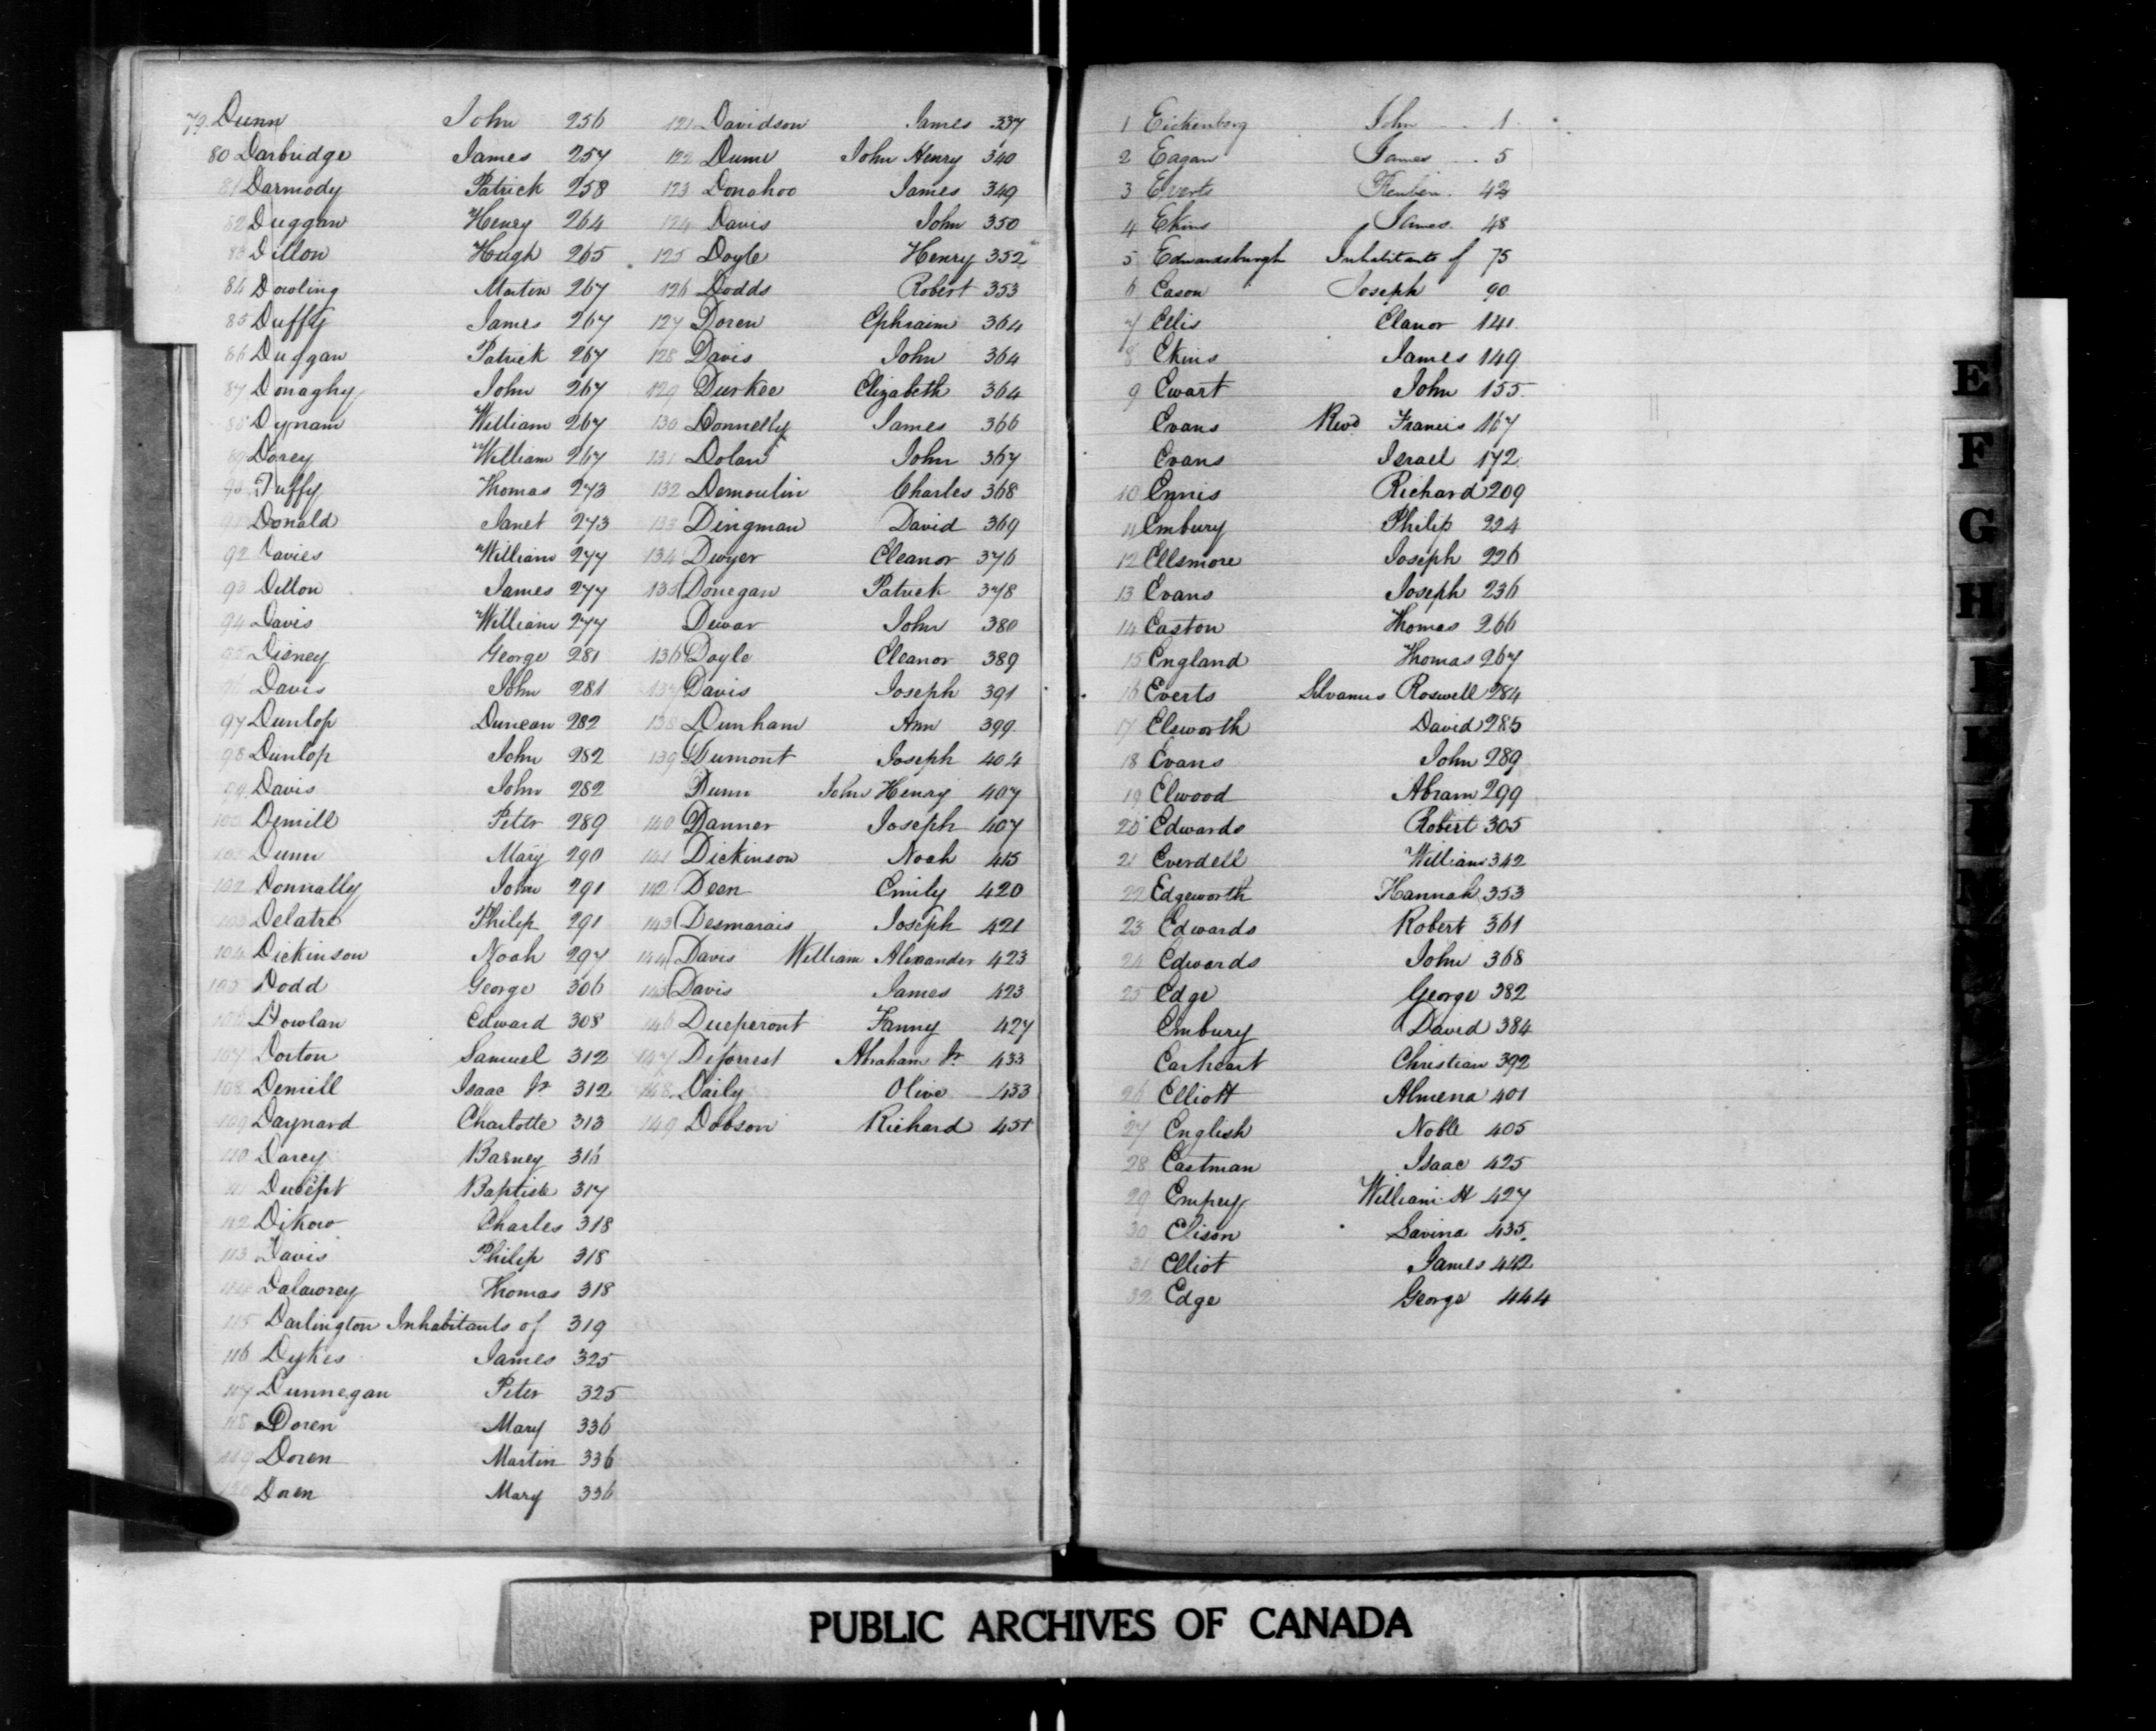 79 Dunn John 256
80 Darbridge James 257
81 Darmody Patrick 258
82 Duggan Henry 264
83 Dillon Hugh 265
84 Dowling Martin 267
85 Duffy James 267
86 Duggan Patrick 267
87 Donaghy John 267
88 Dynam William 267
89 Dorey William 267
90 Duffy Thomas 273
91 Donald Janet 273
92 Davies William 277
93 Dillon James 277
94 Davis William 277
95 Disney George 281
96 Davis John 281
97 Dunlop Duncan 282
98 Dunlop John 282
99 Davis John 282
100 Demill Peter 289
101 Dunn Mary 290
102 Donnally John 291
103 Delatre Philip 291
104 Dickinson Noah 297
105 Dodd George 306
106 Dowlan Edward 308
107 Dorton Samuel 312
108 Demill Isaac Jr 312
109 Daynard Charlotte 313
110 Darcy Barney 316
111 Baptiste 317
112 Dikow Charles 318
113 Davis Philip 318
114 Dalawrey Thomas 318
115 Darlington Inhabitants of 319
116 Dykes James 325
117 Dunnegan Peter 325
118 Doren Mary 336
119 Doren Martin 336
120 Doren Mary 336
121 Davidson James 337
122 Dunn John Henry 340
123 Donahoo James 349
124 Davis John 350
125 Doyle Henry 352
126 Dodds Robert 353
127 Doren Ephraim 364
128 Davis John 364
129 Durkee Elizabeth 364
130 Donnelly James 366
131 Dolan John 367
132 Demoulin Charles 368
133 Dingman David 369
134 Dwyer Eleanor 376
135 Donegan Patrick 378
Dewar John 380
136 Doyle Eleanor 389
137 Davis Joseph 391
138 Dunham Ann 399
139 Dumont Joseph 404
Dunn John Henry 407
140 Danner Joseph 407
141 Dickinson Noah 415
142 Deen Emily 420
143 Desmarais Joseph 421
144 Davis William Alexander 423
145 Davis James 423
146 Duceperont Fanny 427
147 Deforrest Abraham Jr 433
148 Daily Olive 433
149 Dobson Richard 451
1 Eichenberg John 1
2 Eagan James 5
3 Everts Reuben 42
4 Ekins James 48
5 Edwardsburgh Inhabitants of 75
6 Eason Joseph 90
7 Ellis Elanor 141
8 Ekins James 149
9 Ewart John 155
Evans Revd Francis 167
Evans Israel 172
10 Ennis Richard 209
11 Embury Philip 224
12 Ellsmore Joseph 226
13 Evans Joseph 236
14 Easton Thomas 266
15 England Thomas 267
16 Everts Silvanus Roswell 284
17 Elsworth David 285
18 Evans John 289
19 Elwood Abram 299
20 Edwards Robert 305
21 Everdell William 342
22 Edgeworth Hannah 353
23 Edwards Robert 361
24 Edwards John 368
25 Edge George 382
Embury David 384
Earheart Christian 392
26 Elliott Almena 401
27 English Noble 405
28 Eastman Isaac 425
29 Empey William H 427
30 Elison Lavina 435
31 Elliot James 442
32 Edge George 444
E
F
G
H
PUBLIC ARCHIVES OF CANADA